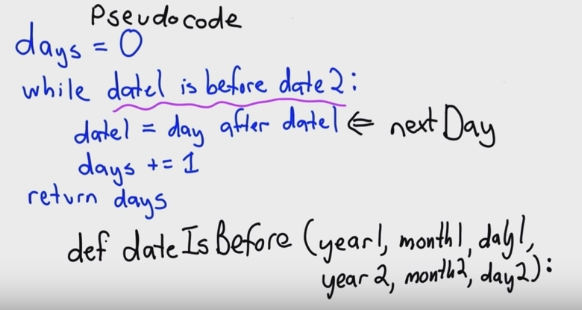 Pseudocode
days = 0
while date1 is before date2:
date1 = day after date1 ⇐ nextDay
days += 1
return days
def dateIsBefore (year1, month1, day1,
year2, month2, day2):